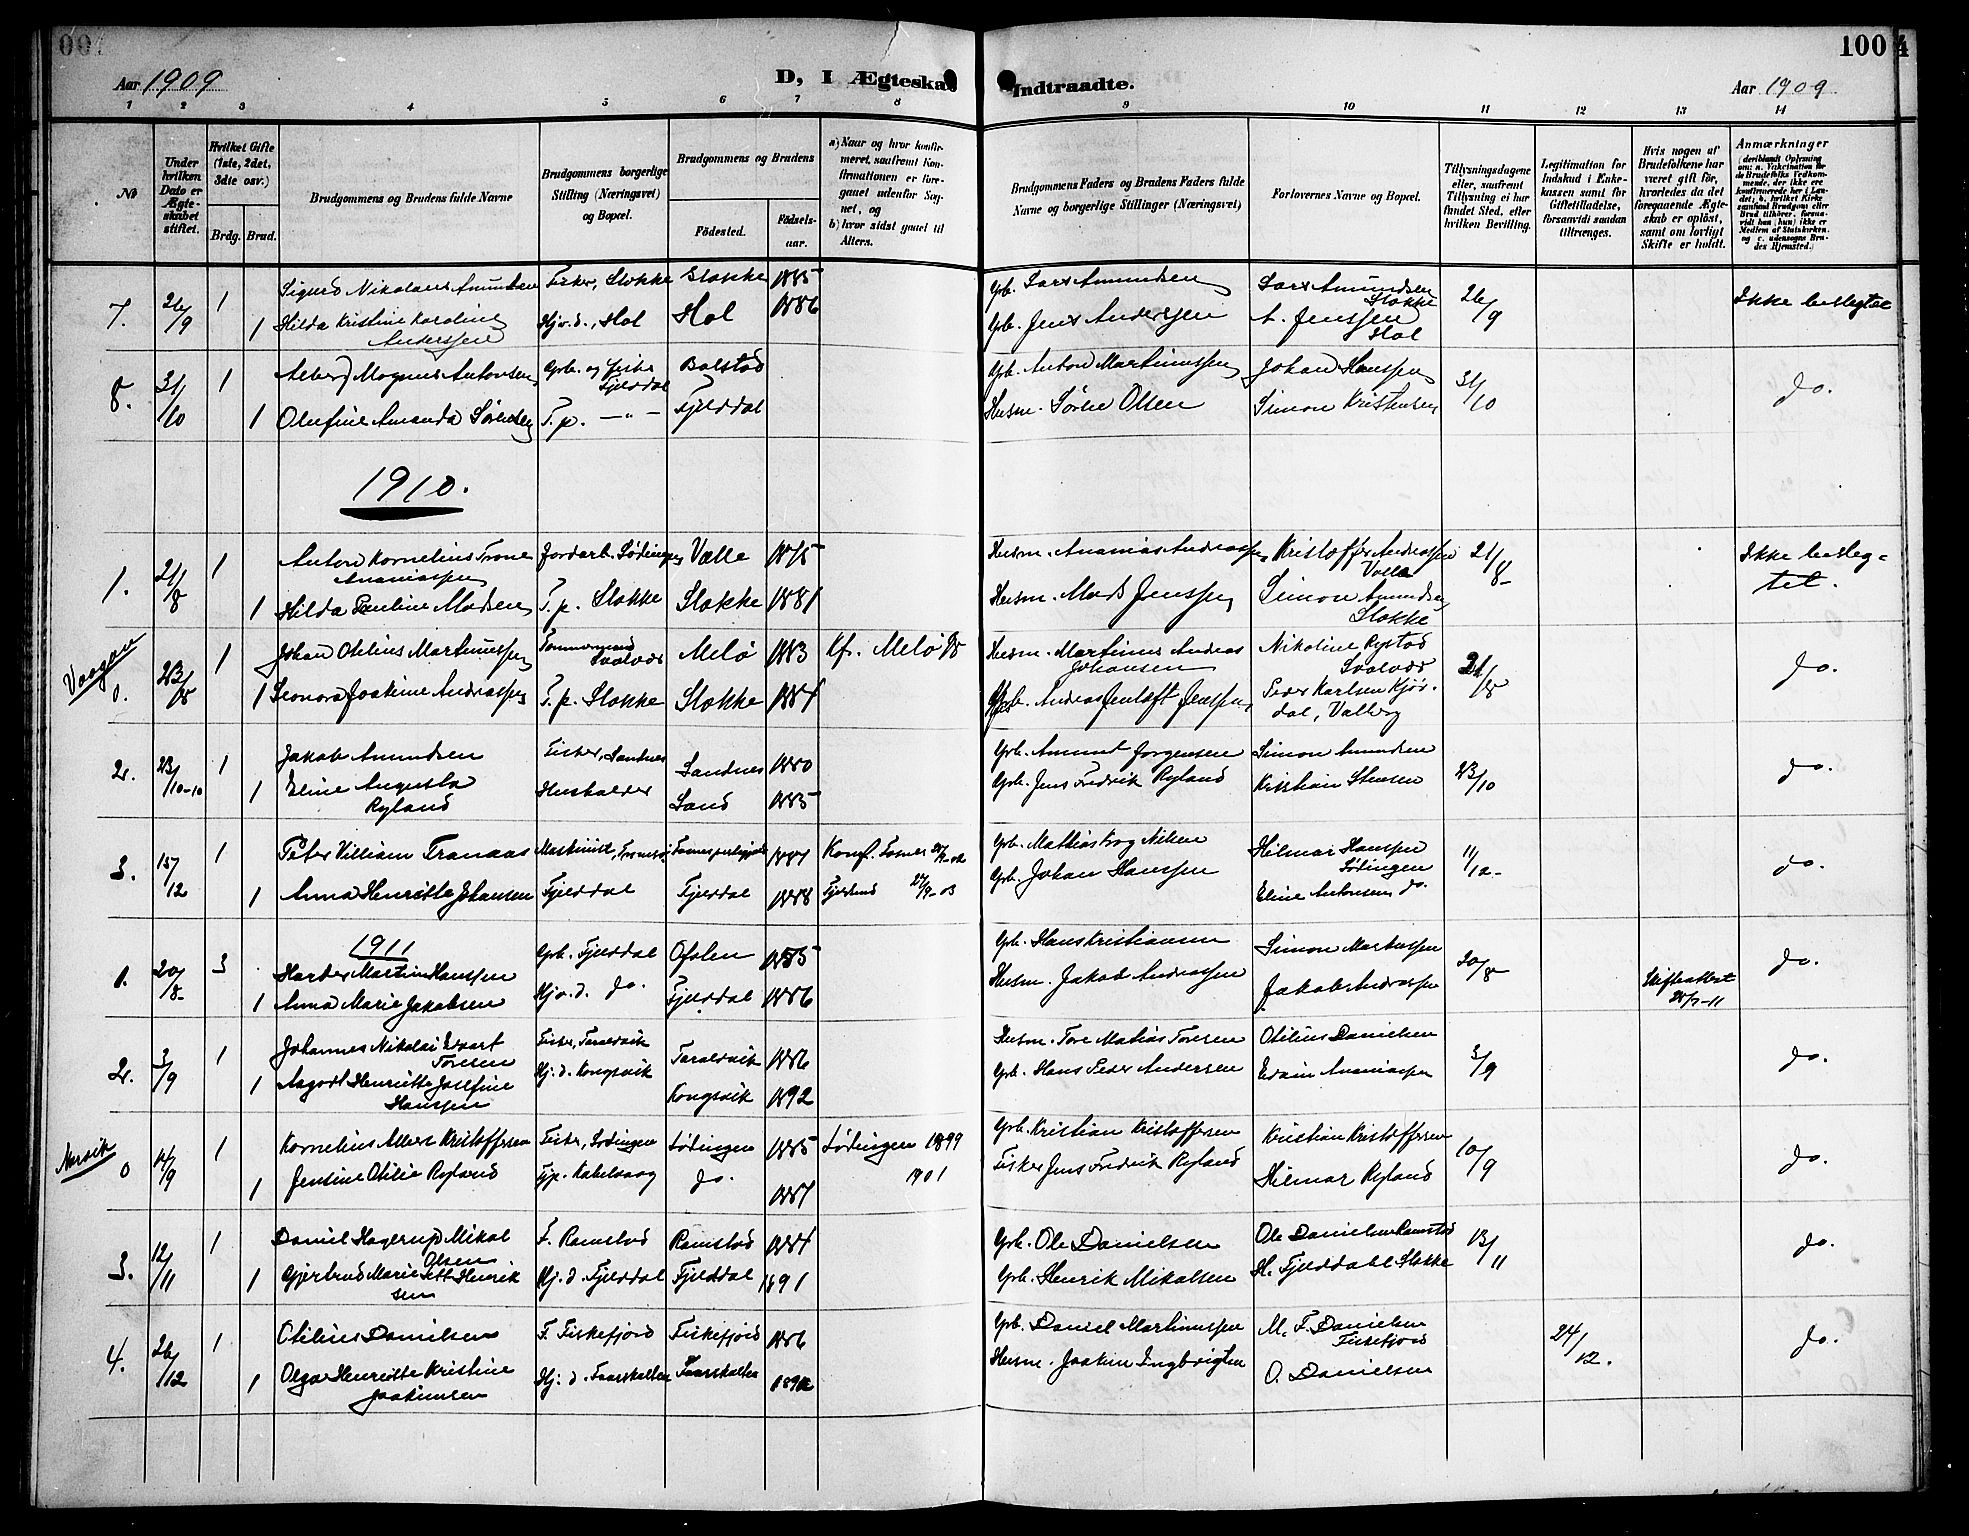 100
Aar 1909
D, I Ægteska
Indtraadte.
Aar 1909
1 2 3 4 5 6 7 8 9 10 11 12 13 14
No
Under hvilken Dato er Ægteskabet stiftet.
Hvilket Gifte (1ste, 2det, 3dte osv.)
Brdg. Brud.
Brudgommens og Brudens fulde Navne
Brudgommens borgerlige Stilling (Næringsvei) og Bopæl.
Brudgommens og Brudens
Födested. Födselsaar.
a) Naar og hvor konfirmeret, saafremt Konfirmationen er foregaaet udenför Sognet, og
b) hvor sidst gaaet til Alters.
Brudgommens Faders og Brudens Faders fulde Navne og borgerlige Stillinger (Næringsvei)
Forlovernes Navne og Bopæl.
Tillysningsdagene eller, saafremt Tillysning ei har fundet Sted, efter hvilken Bevilling.
Legitimation for Indskud i Enkekassen samt for Giftetilladelse, forsaavidt saadan tiltrænges.
Hvis nogen af Brudefolkene har været gift för, hvorledes da det foregaaende Ægteskab er oplöst, samt om lovligt Skifte er holdt.
Anmærkninger
7. 26/9 1 Sigurd Nikolaus Amundsen Fisker, Stokke Stokke 1885 Gbr. Lars Amundsen Lars Amundsen Stokke 26/9 Ikke beslegtet
1 Hilda Kristine Karoline Anderssen Hjv.d., Hol Hol 1886 Gbr. Jens Anderssen A. Jenssen Hol
8. 31/10 1 Albert Magnus Antonsen Gbr. og Fisker Fjelddal Balstad Gbr. Anton Martinussen Johan Hanssen 31/10 do.
1 Olufine Amanda Sörensen T.p. —"— Fjelddal Husm. Sören Olsen Simon Kristensen
1910.
1. 21/8 1 Anton Kornelius Trone Ananiassen Jordarb. Lödingen Valle 1875 Husm. Ananias Andreassen Kristoffer Andreassen Valle 21/8 Ikke besleg-
1 Hilda Pauline Madsen T.p. Stokke Stokke 1881 Husm. Mads Jenssen Simon Amundsen Stokke tet.
Vaagan
0. 23/18 1 Johan Otelius Martinussen Tömmermand Svolvær Melö 1883 Kf. Melö 98 Husm. Martinus Andreas Johansen Nikoline Rystad Svolvær 21/18 do.
1 Leonora Joakine Andreassen T.p. Stokke Stokke 1884 Gbr. Andreas Jentoft Jenssen Peder Karlsen Kjördal, Valberg
2. 23/10-10 1 Jakob Amundsen Fisker, Sandnes Sandnes 1880 Gbr. Amunt Jorgensen Simon Amundsen 23/10 do.
1 Eline Augusta Ryland Husholder Sand 1885 Gbr. Jens Fredrik Ryland Kristian Stensen
3. 157/12 1 Peter Villiam Tranaas Maskinist, Tromsö 1884 Konf. Gbr. Mathias Krog Nilsen Hilmar Hanssen Lödingen 11/12- do.
1 Anna Henriette Johansen Fjelddal Fjelddal 1888 27/9-03 Gbr. Johan Hanssen Eline Antonsen do.
1911
1. 20/8- 3 Harder Martin Hanssen Gbr. Fjelddal Ofoten 1855 Gbr. Hans Kristiansen Simon Markussen 20/8 Skifteattest 28/7-11 do.
1 Anna Marie Jakobsen Hjv.d. do. Fjelddal 1886 Husm. Jakob Andreassen Jakob Andreassen
2. 3/9 1 Johannes Nikolai Edvart Toresen Fisker, Taraldvik Taraldvik 1886 Husm. Tore Matias Toresen Otilius Danielsen 3/9 do.
1 Aagodt Henriette Josefine Hanssen Hj.d. Kongsvik Kongsvik 1892 Gbr. Hans Peder Andersen Edvin Ananiassen
Narvik
0 14/9 1 Kornelius Albert Kristoffersen Fisker, Lödingen Lödingen 1885 Lödingen 1899 Gbr. Kristian Kristoffersen Kristian Kristoffersen 10/9 do.
1 Jensine Otilie Ryland Tjp. Kabelvaag do. 1887 1901 Fisker Jens Fredrik Ryland Hilmar Ryland
3. 12/11 1 Daniel Hagerup Mikal Olsen F. Ramstad Ramstad 1884 Gbr. Ole Danielsen Ole Danielsen Ramstad 13/11 do.
1 Gjertrud Marie Henriksen Hj.d. Fjelddal Fjelddal 1891 Gbr. Henrik Mikalsen H. Fjelddahl Stokke
4. 26/12 1 Otilius Danielsen F. Fiskefjord Fiskefjord 1886 Gbr. Daniel Martinussen M. F. Danielsen Fiskefjord 24/12. do.
1 Olga Henriette Kristine Joakimsen Hj.d. Faarskallen Faarskallen Husm. Joakim Ingbrigtsen O. Danielsen